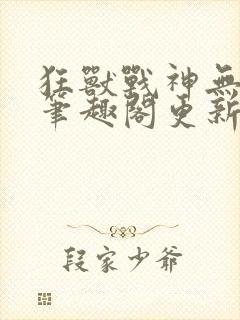 狂獸戰神無
筆趣閣更新
段家少爺